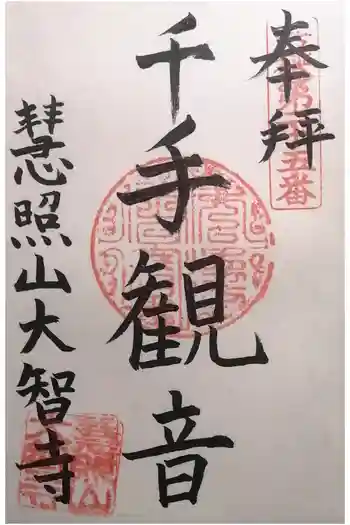 奉拝
千手観音
慧照山大智寺